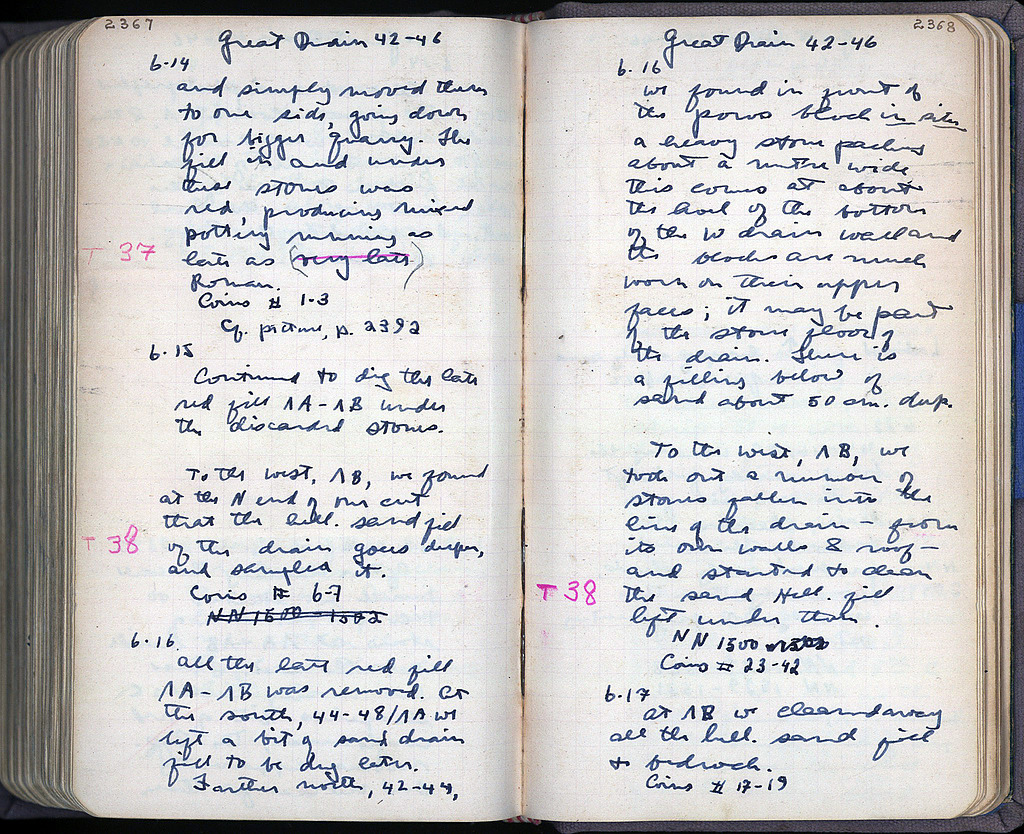 2367
Great Drain 42-46
6-14
and simply moved them
to one side, going down
for bigger quarry. The
fill in and under
these stones was
red, producing mixed
pottery running as
T 37
late as (very late)
Roman.
Coins # 1-3
Cf. picture, p. 2392
6-15
Continued to dig the late
red fill ΛA-ΛB under
the discarded stones.
To the west, ΛB, we found
at the N end of our cut
that the hell. sand fill
T 38
of the drain goes deeper,
and sampled it.
Coins # 6-7
NN 1500-1502
6-16
All the late red fill
ΛA-ΛB was removed. At
the south, 44-48/ΛA we
left a bit of sand drain
fill to be dug later.
Farther north, 42-44,
2368
Great Drain 42-46
6-16
we found in front of
the poros block in situ
a heavy stone packing
about a metre wide
this comes at about
the level of the bottom
of the W drain wall and
the blocks are much
worn on their upper
faces; it may be part
of the stone floor of
the drain. There is
a filling below of
sand about 50 cm. deep.
To the west, ΛB, we
took out a number of
stones fallen into the
line of the drain - from
its own walls & roof -
and started to clean
T 38
the sand Hell. fill
left under them.
NN 1500
Coins # 23-42
6-17
At ΛB we cleaned away
all the hell. sand fill
to bedrock.
Coins # 17-19